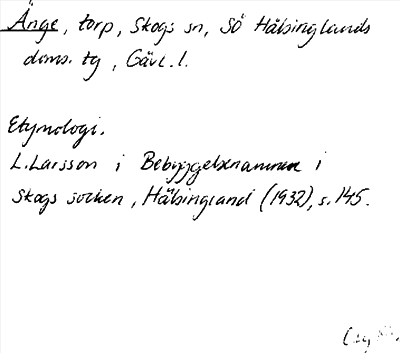 Änge, torp, Skogs sn, Sö Hälsinglands
doms. tg, Gävl. l.
Etymologi.
L. Larsson i Bebyggelsenamnen i
Skogs socken, Hälsingland (1932), s. 145.